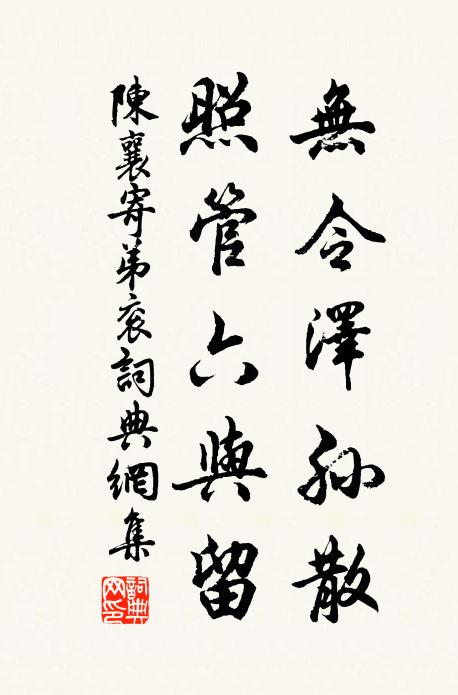 無令澤孙散
照管六與留
陳襄寄弟衮詞典網集
詞典网印